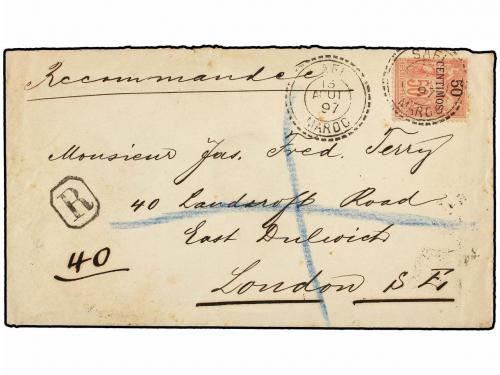 Recommandée
SAFI
13
AOUT
97
MAROC
SAFI
97
MAROC
50
CENTIMOS
50
Monsieur Jas. Fred. Terry
40 Landcroft Road
East Dulwich
London S E
R
40